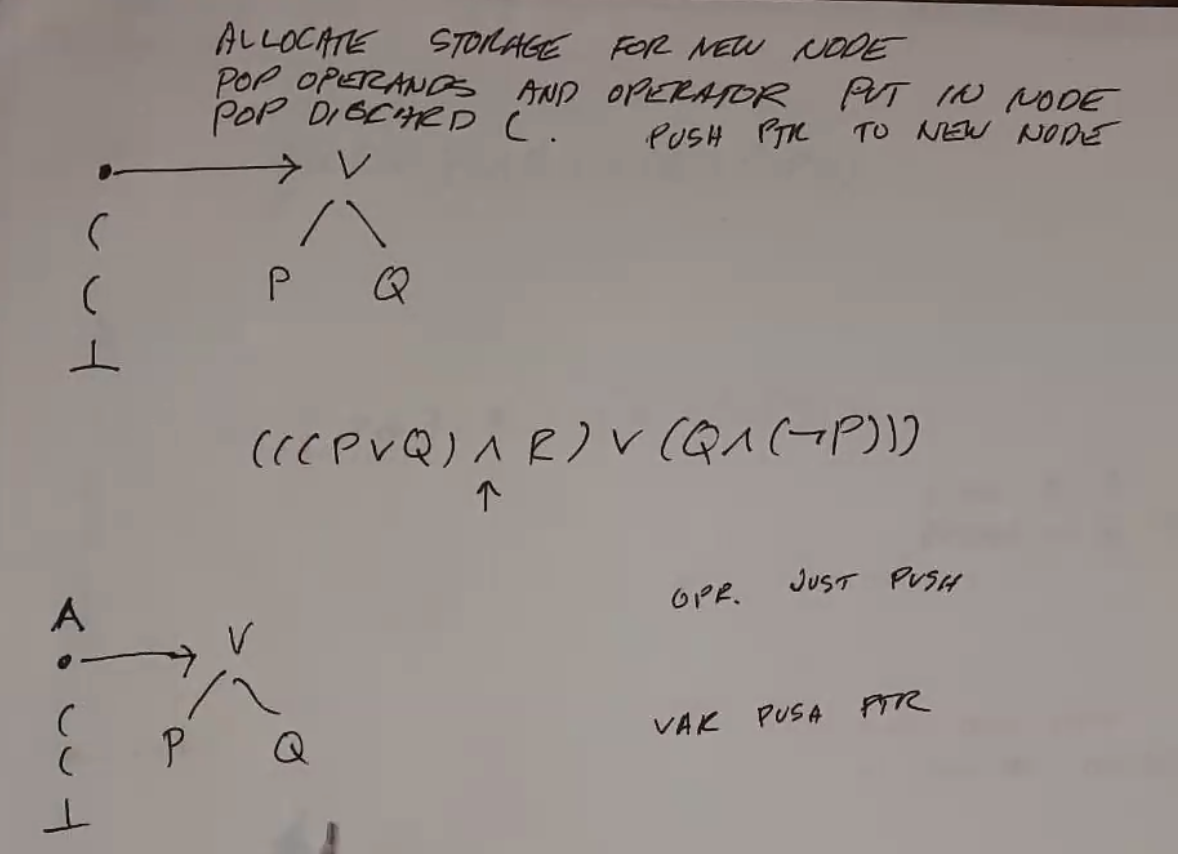 ALLOCATE STORAGE FOR NEW NODE
POP OPERANDS AND OPERATOR PUT IN NODE
POP DISCARD (. PUSH PTR TO NEW NODE
V
(
P Q
(
⊥
(((P∨Q) ∧ R) ∨ (Q∧(¬P)))
↑
OPR. JUST PUSH
A
V
(
VAR PUSH PTR
P Q
(
⊥